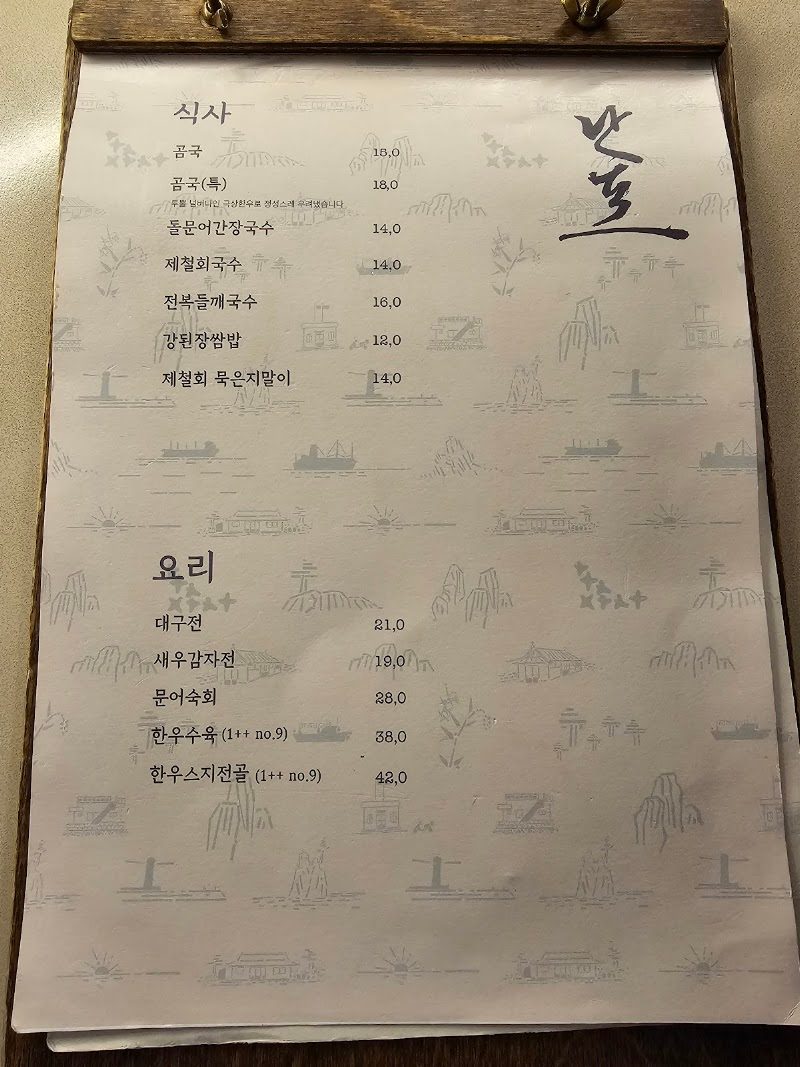 식사
난포
곰국 15,0
곰국(특) 18,0
투쁠 넘버나인 극상한우로 정성스레 우려냈습니다
돌문어간장국수 14,0
제철회국수 14,0
전복들깨국수 16,0
강된장쌈밥 12,0
제철회 묵은지말이 14,0
요리
대구전 21,0
새우감자전 19,0
문어숙회 28,0
한우수육 (1++ no.9) 38,0
한우스지전골 (1++ no.9) 42,0